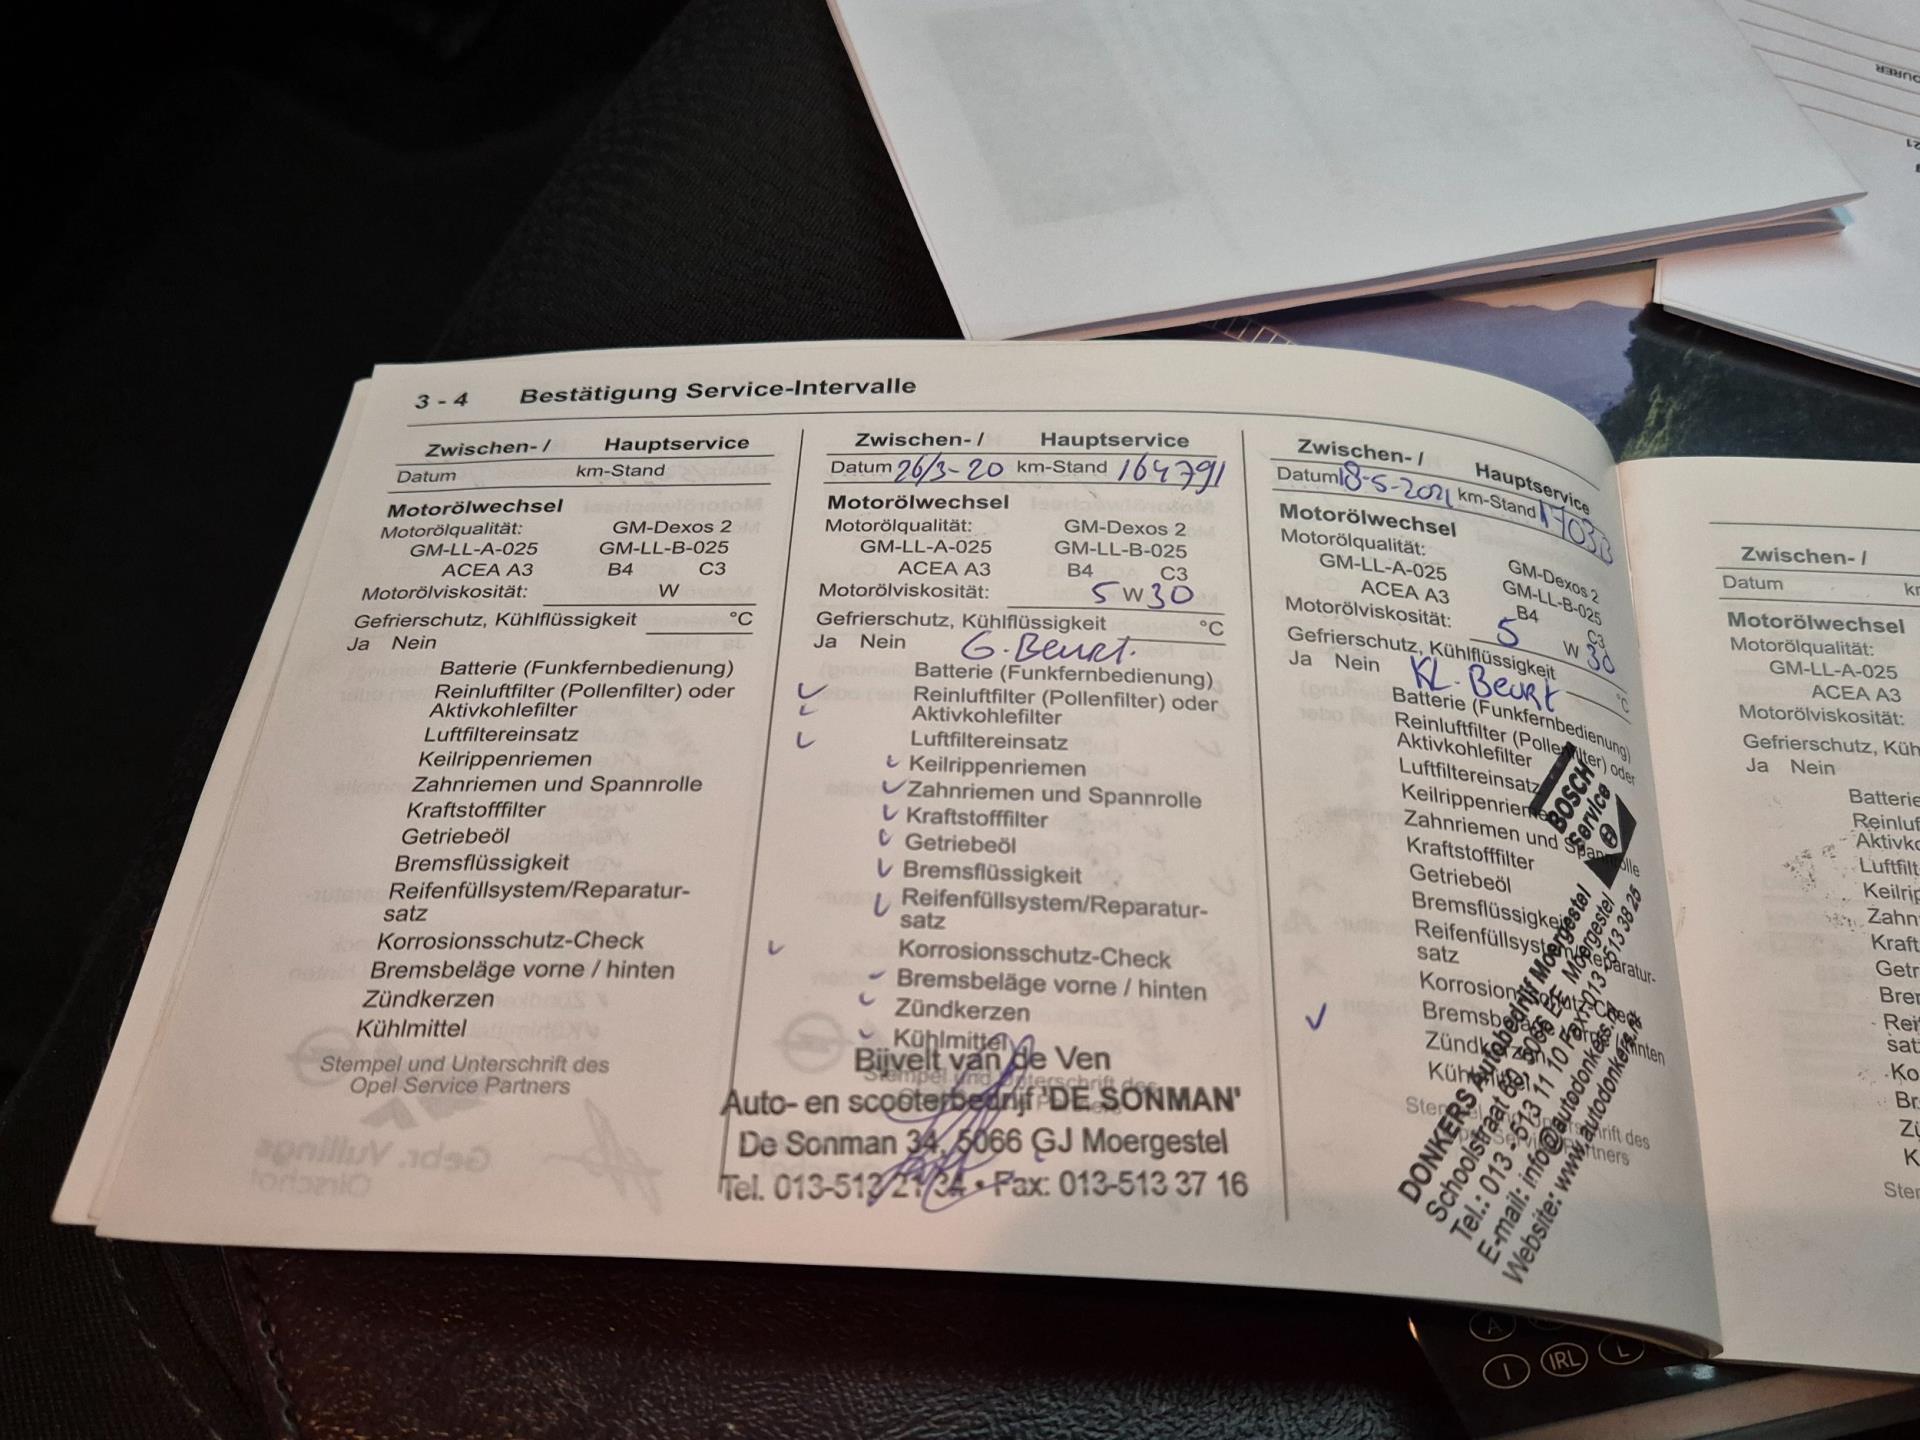 3 - 4 Bestätigung Service-Intervalle
Zwischen- / Hauptservice
Datum km-Stand
Motorölwechsel
Motorölqualität: GM-Dexos 2
GM-LL-A-025 GM-LL-B-025
ACEA A3 B4 C3
Motorölviskosität: W
Gefrierschutz, Kühlflüssigkeit °C
Ja Nein
Batterie (Funkfernbedienung)
Reinluftfilter (Pollenfilter) oder
Aktivkohlefilter
Luftfiltereinsatz
Keilrippenriemen
Zahnriemen und Spannrolle
Kraftstofffilter
Getriebeöl
Bremsflüssigkeit
Reifenfüllsystem/Reparatur-
satz
Korrosionsschutz-Check
Bremsbeläge vorne / hinten
Zündkerzen
Kühlmittel
Stempel und Unterschrift des
Opel Service Partners
Zwischen- / Hauptservice
Datum 26/3-20 km-Stand 164791
Motorölwechsel
Motorölqualität: GM-Dexos 2
GM-LL-A-025 GM-LL-B-025
ACEA A3 B4 C3
Motorölviskosität: 5 W 30
Gefrierschutz, Kühlflüssigkeit °C
Ja Nein G. Beurt.
Batterie (Funkfernbedienung)
Reinluftfilter (Pollenfilter) oder
Aktivkohlefilter
Luftfiltereinsatz
Keilrippenriemen
Zahnriemen und Spannrolle
Kraftstofffilter
Getriebeöl
Bremsflüssigkeit
Reifenfüllsystem/Reparatur-
satz
Korrosionsschutz-Check
Bremsbeläge vorne / hinten
Zündkerzen
Kühlmittel
Stempel und Unterschrift des
Bijvelt van de Ven
Auto- en scooterbedrijf 'DE SONMAN'
De Sonman 34, 5066 GJ Moergestel
Tel. 013-513 21 34 • Fax: 013-513 37 16
Zwischen- / Hauptservice
Datum 18-5-2021 km-Stand
Motorölwechsel
Motorölqualität: GM-Dexos 2
GM-LL-A-025 GM-LL-B-025
ACEA A3 B4 C3
Motorölviskosität: 5 W 30
Gefrierschutz, Kühlflüssigkeit °C
Ja Nein KL. Beurt
Batterie (Funkfernbedienung)
Reinluftfilter (Pollenfilter) oder
Aktivkohlefilter
Luftfiltereinsatz
Keilrippenriemen
Zahnriemen und Spannrolle
Kraftstofffilter
Getriebeöl
Bremsflüssigkeit
Reifenfüllsystem/Reparatur-
satz
Korrosionsschutz-Check
Bremsbeläge vorne / hinten
Zündkerzen
Kühlmittel
BOSCH
Service
DONKERS Autobedrijf Moergestel
Schoolstraat 60, 5066 EE Moergestel
Tel.: 013 - 513 11 10 Fax: 013 - 513 38 25
E-mail: info@autodonkers.nl
Website: www.autodonkers.nl
Zwischen- /
Datum
Motorölwechsel
Motorölqualität:
GM-LL-A-025
ACEA A3
Motorölviskosität:
Gefrierschutz, Küh
Ja Nein
Batterie
Reinluf
Aktivko
Luftfilt
Keilrip
Zahn
Kraft
Getr
Bre
Rei
satz
Ko
Br
Zü
K
Ster
A
I IRL L